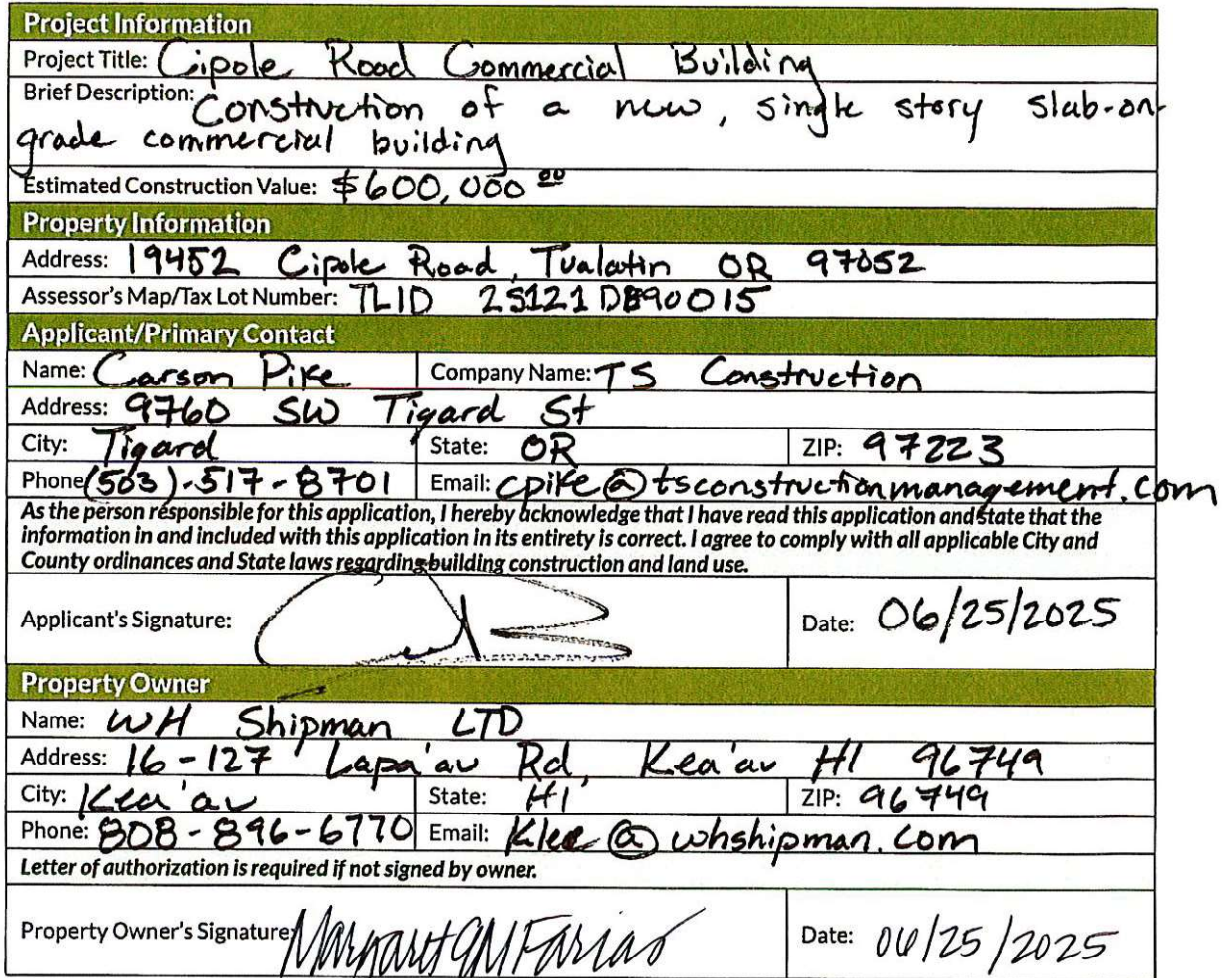 Project Information
Project Title: Cipole Road Commercial Building
Brief Description: Construction of a new, single story slab-on-
grade commercial building
Estimated Construction Value: $600,000 00
Property Information
Address: 19452 Cipole Road, Tualatin OR 97052
Assessor's Map/Tax Lot Number: TLID
Applicant/Primary Contact
Name: Carson Pike Company Name: TS Construction
Address: 9760 SW Tigard St
City: Tigard State: OR ZIP: 97223
Phone (503)-517-8701 Email: cpike@tsconstructionmanagement.com
As the person responsible for this application, I hereby acknowledge that I have read this application and state that the
information in and included with this application in its entirety is correct. I agree to comply with all applicable City and
County ordinances and State laws regarding building construction and land use.
Applicant's Signature: Date: 06/25/2025
Property Owner
Name: WH Shipman LTD
Address: 16-127 Lapa'au Rd, Kea'au HI 96749
City: Kea'au State: HI ZIP: 96749
Phone: 808-896-6770 Email: Klee@whshipman.com
Letter of authorization is required if not signed by owner.
Property Owner's Signature: Margaret Farias Date: 06/25/2025